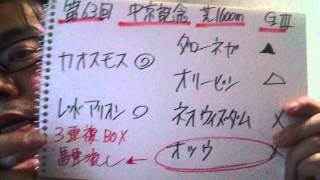 第63回 中京記念 芝1600m GⅢ
カオスモス ◎
レッドアリオン ○
3連複BOX
馬単流し
タガノエトワール ▲
オリービン △
ネオウィズダム ×
オッウ ×